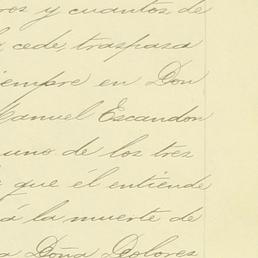 y cuantos de
cede, traspasa
en Don
Manuel Escandon
uno de los tres
que él entiende
á la muerte de
Doña Dolores